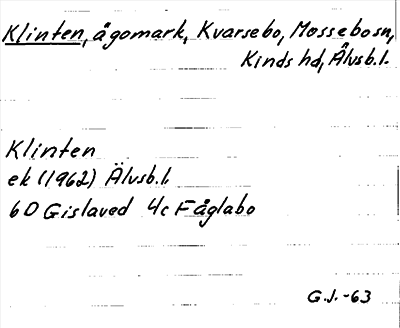 Klinten, ågomark, Kvarsebo, Mossebo sn,
Kinds hd, Älvsb.l.
Klinten
ek (1962) Älvsb.l.
6D Gislaved 4c Fåglabo
G.J.-63